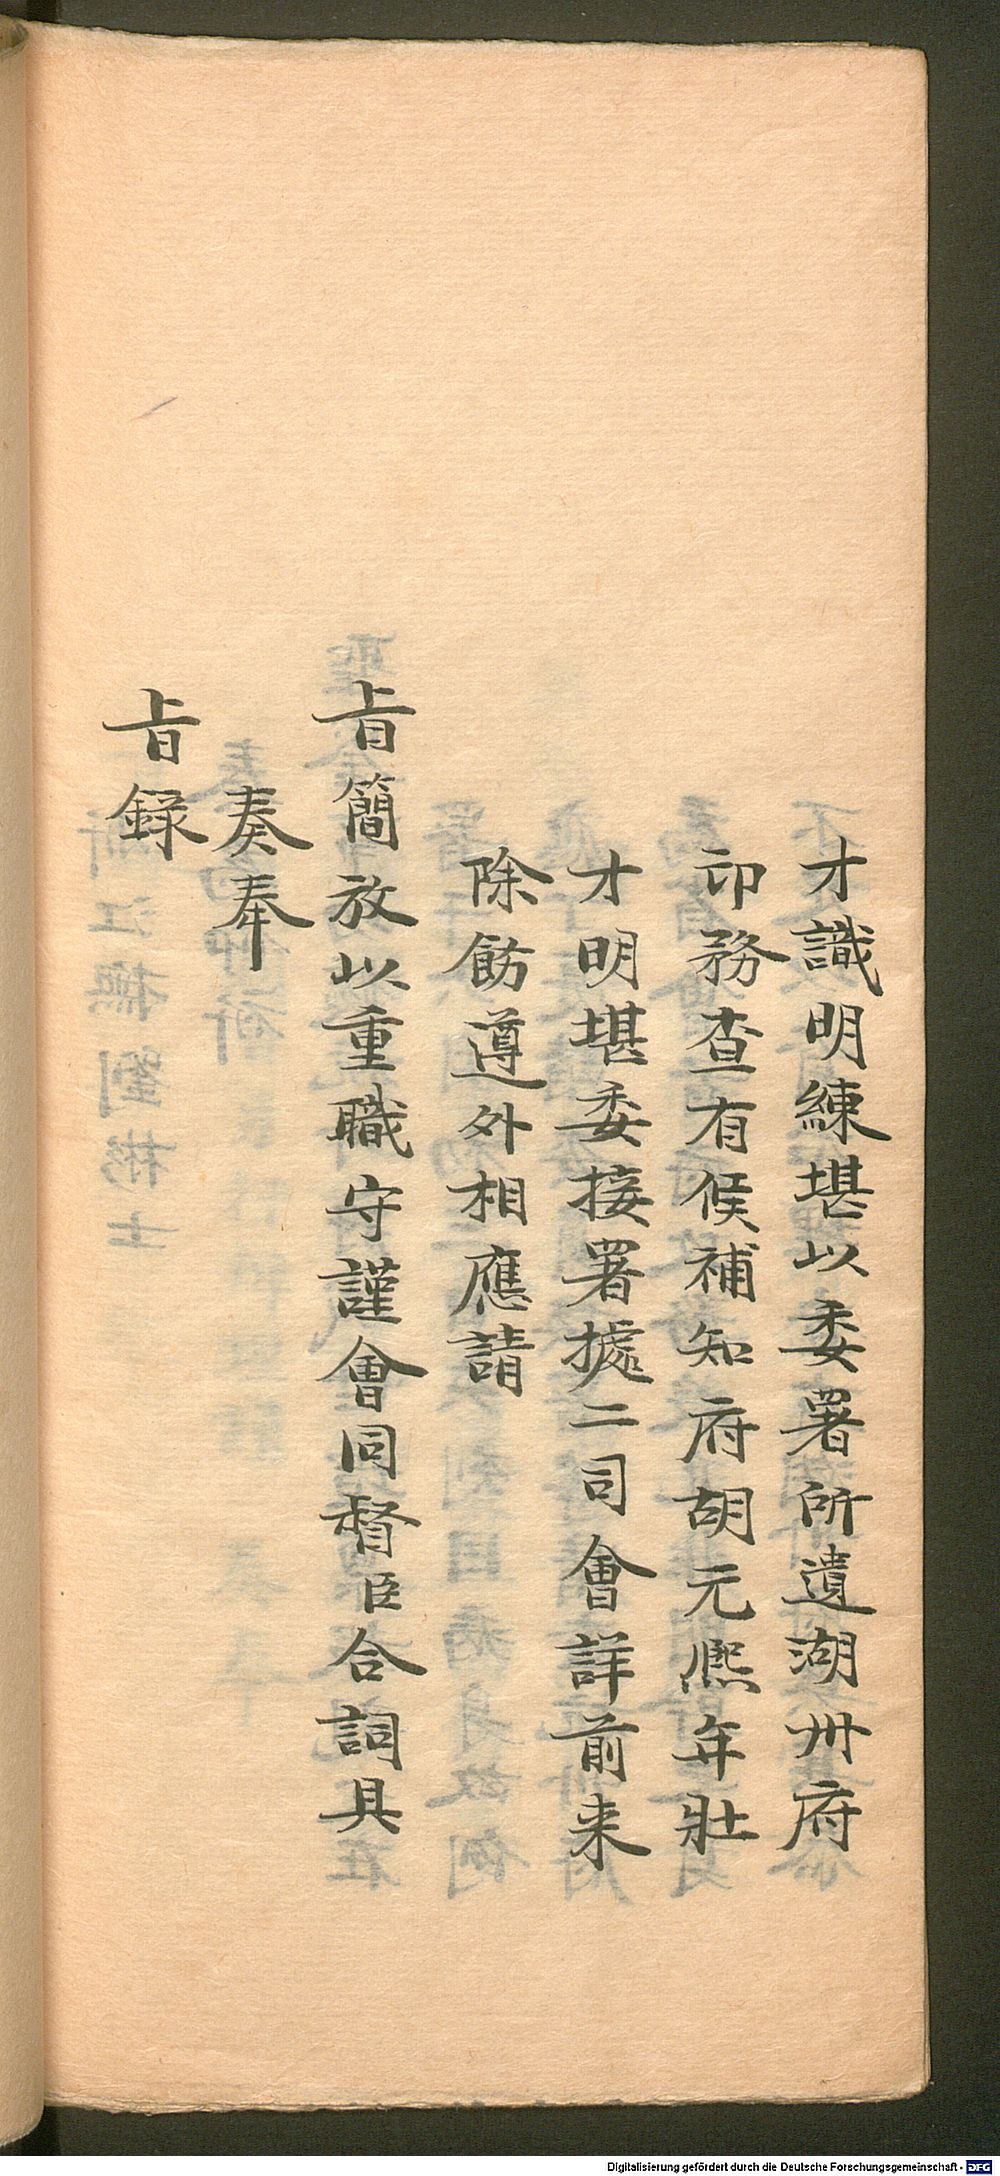 才識明練堪以委署所遺湖州府
印務查有候補知府胡元熙年壯
才明堪委接署據二司會詳前来
除飭遵外相應請
旨簡放以重職守謹會同督臣合詞具
奏奉
旨録
Digitalisierung gefördert durch die Deutsche Forschungsgemeinschaft - DFG